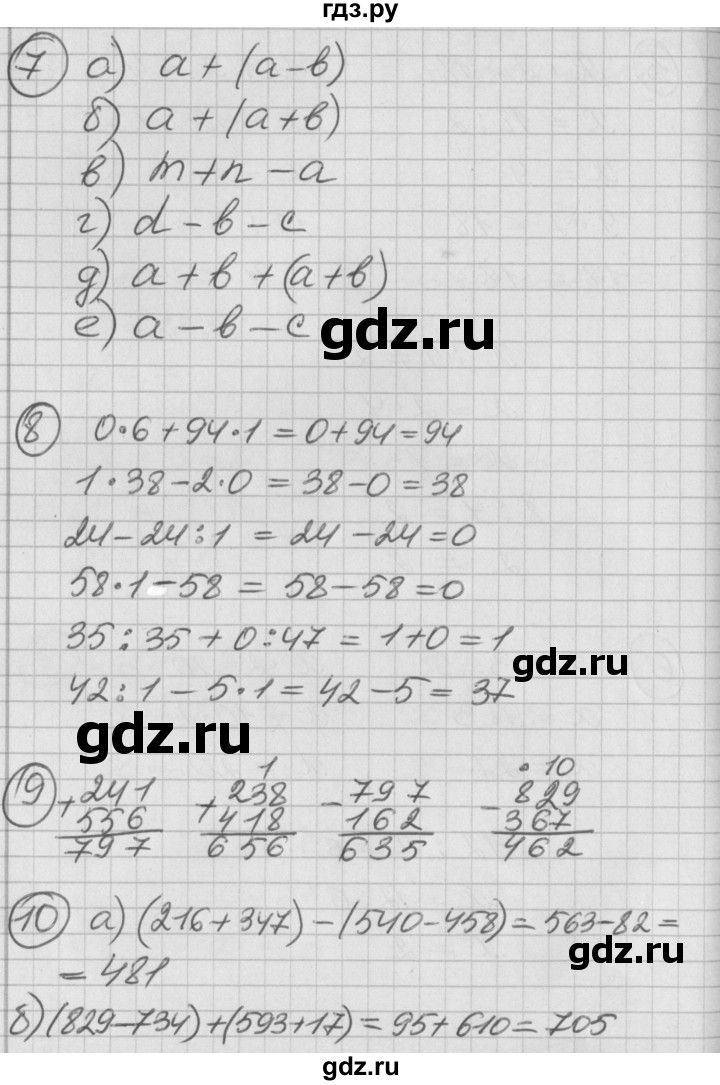 гдз.ру
7 а) a + (a - в)
б) a + (a + в)
в) m + n - a
г) d - в - c
д) a + в + (a + в)
е) a - в - c
gdz.ru
8 0·6 + 94·1 = 0 + 94 = 94
1·38 - 2·0 = 38 - 0 = 38
24 - 24:1 = 24 - 24 = 0
58·1 - 58 = 58 - 58 = 0
35:35 + 0:47 = 1 + 0 = 1
gdz.ru
42:1 - 5·1 = 42 - 5 = 37
1 ·10
9 + 241 + 238 - 797 - 829
556 418 162 367
797 656 635 462
10 а) (216 + 347) - (540 - 458) = 563 - 82 =
= 481
gdz.ru
б) (829 - 734) + (593 + 17) = 95 + 610 = 705
gdz.ru